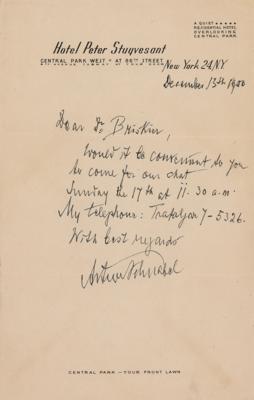 A QUIET
RESIDENTIAL HOTEL
OVERLOOKING
CENTRAL PARK
Hotel Peter Stuyvesant
CENTRAL PARK WEST AT 86TH STREET
New York 24, NY
December 13th 1950
Dear Dr Briskier,
Would it be convenient to you
to come for our chat
Sunday the 17th at 11.30 a.m.
My telephone: Trafalgar 7-5326.
With best regards
Artur Schnabel
CENTRAL PARK — YOUR FRONT LAWN